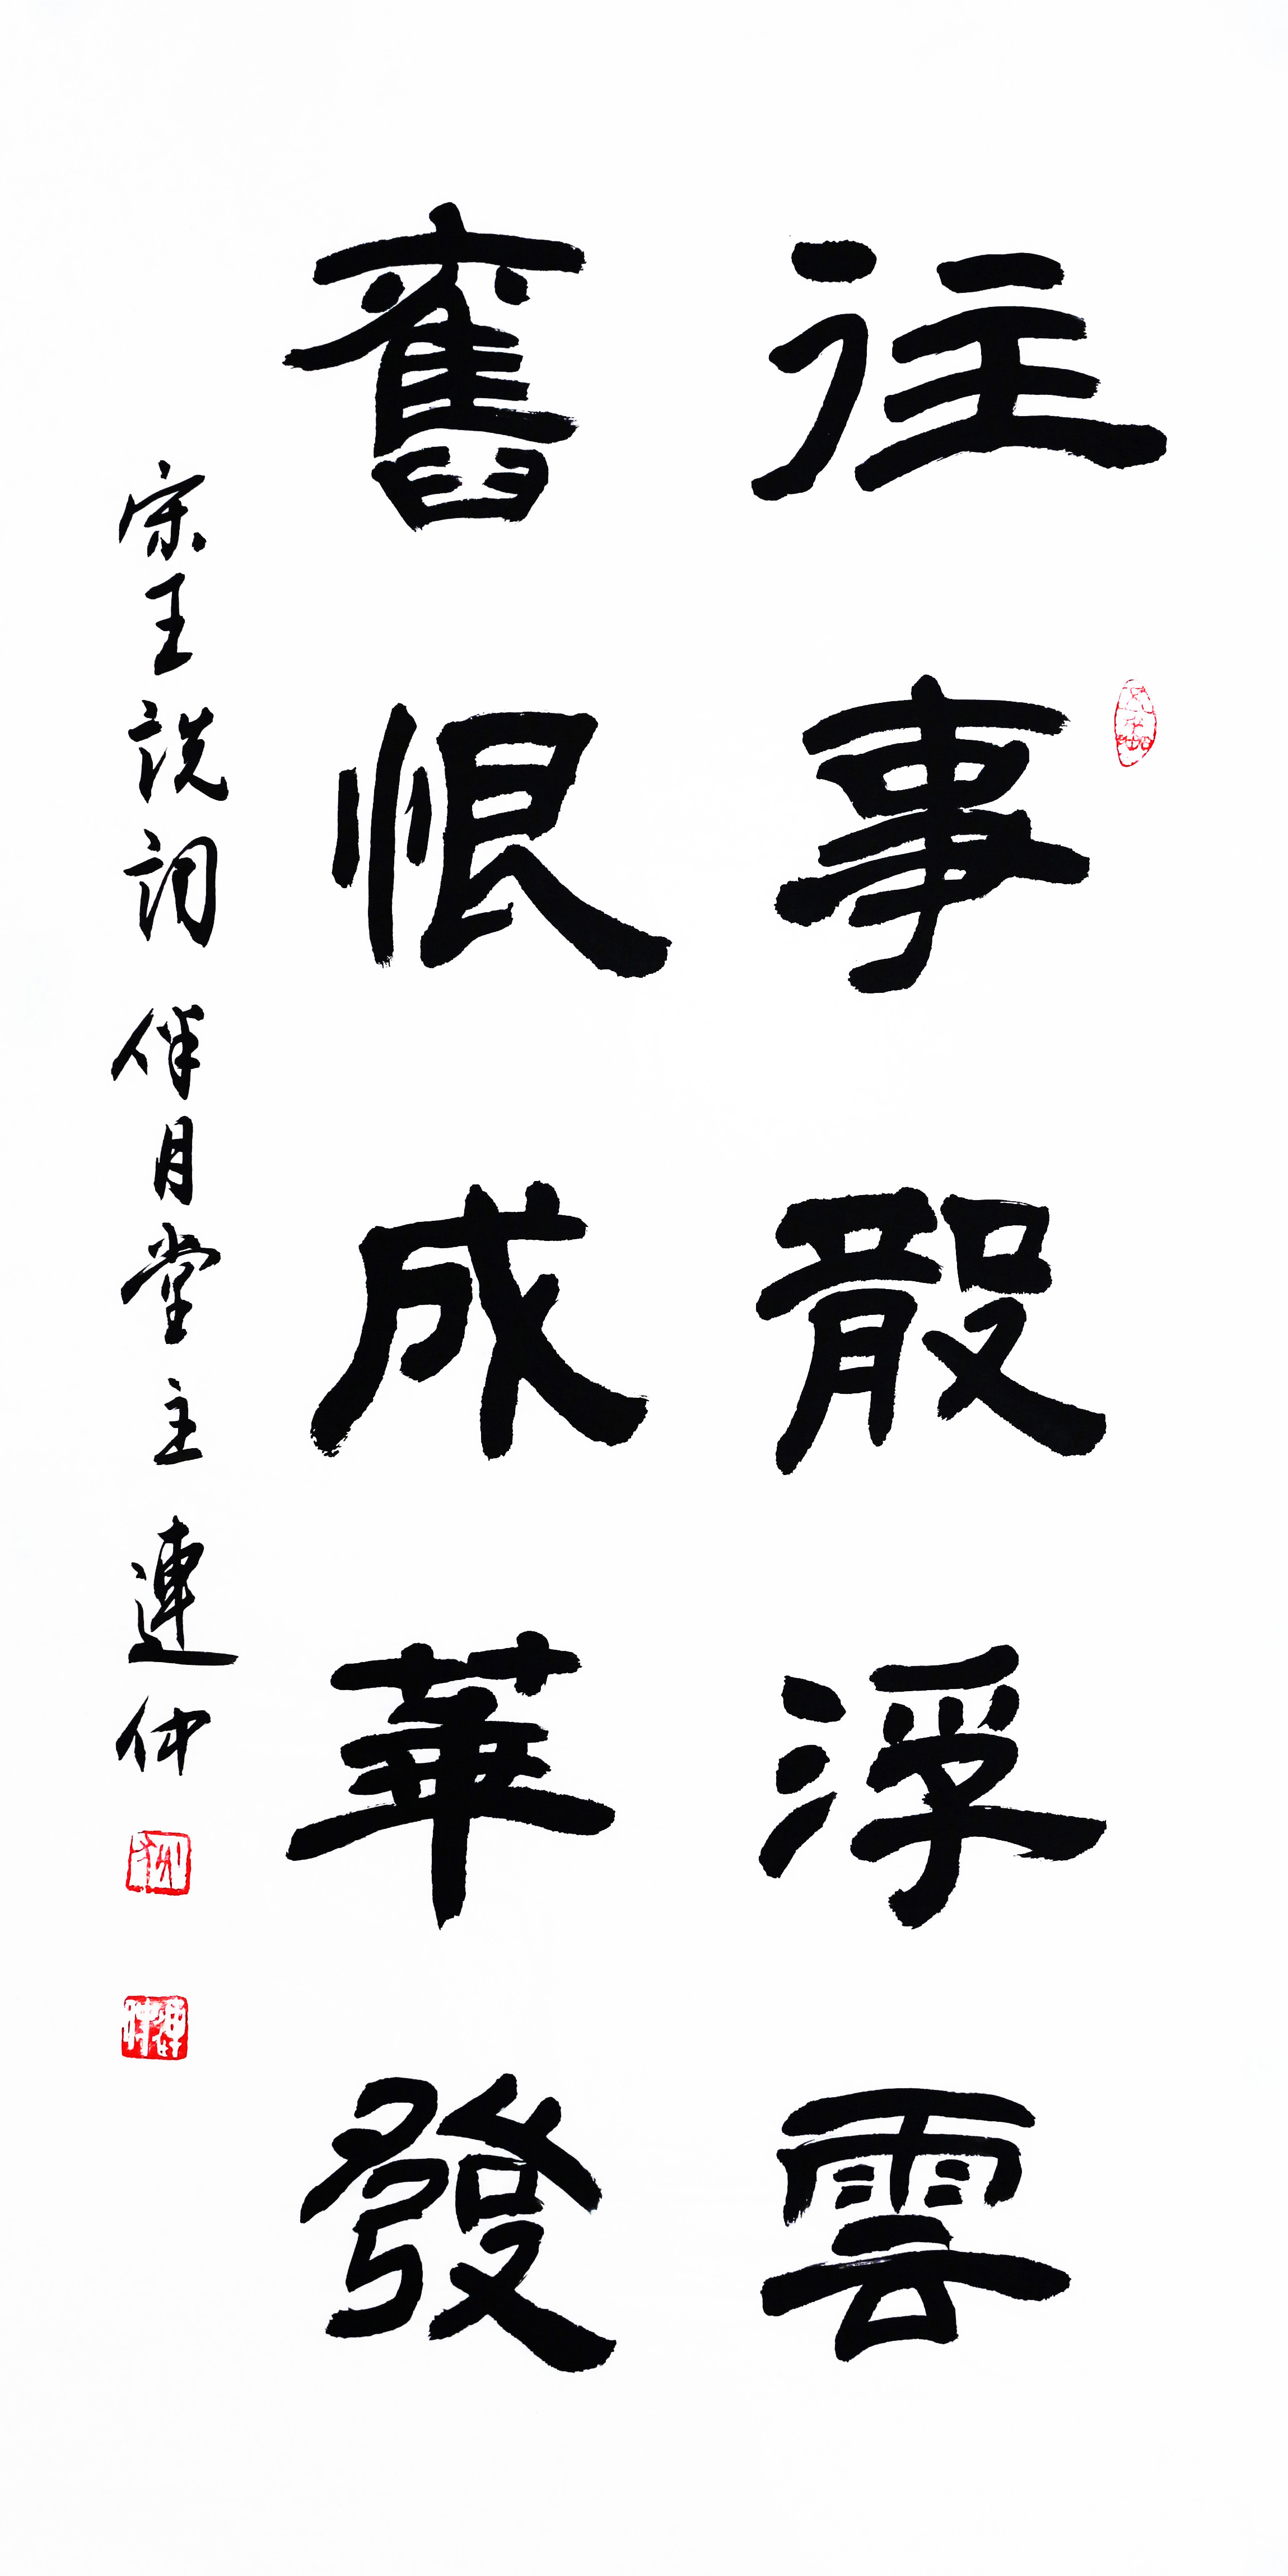 往事散浮雲
舊恨成華發
宋王詵詞 伴月堂主 連仲
連仲